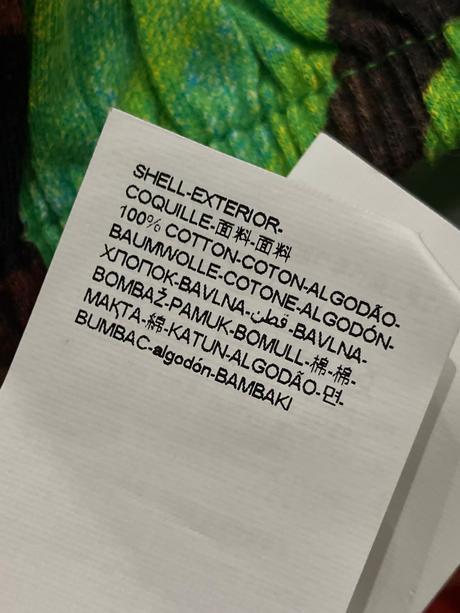 SHELL-EXTERIOR-
COQUILLE-面料-面料
100% COTTON-COTON-ALGODÃO-
BAUMWOLLE-COTONE-ALGODÓN-
ХПОПОК-BAVLNA-قطن-BAVLNA-
BOMBAŽ-PAMUK-BOMULL-棉-棉-
MAKTA-綿-KATUN-ALGODÃO-면-
BUMBAC-algodón-BAMBAKI